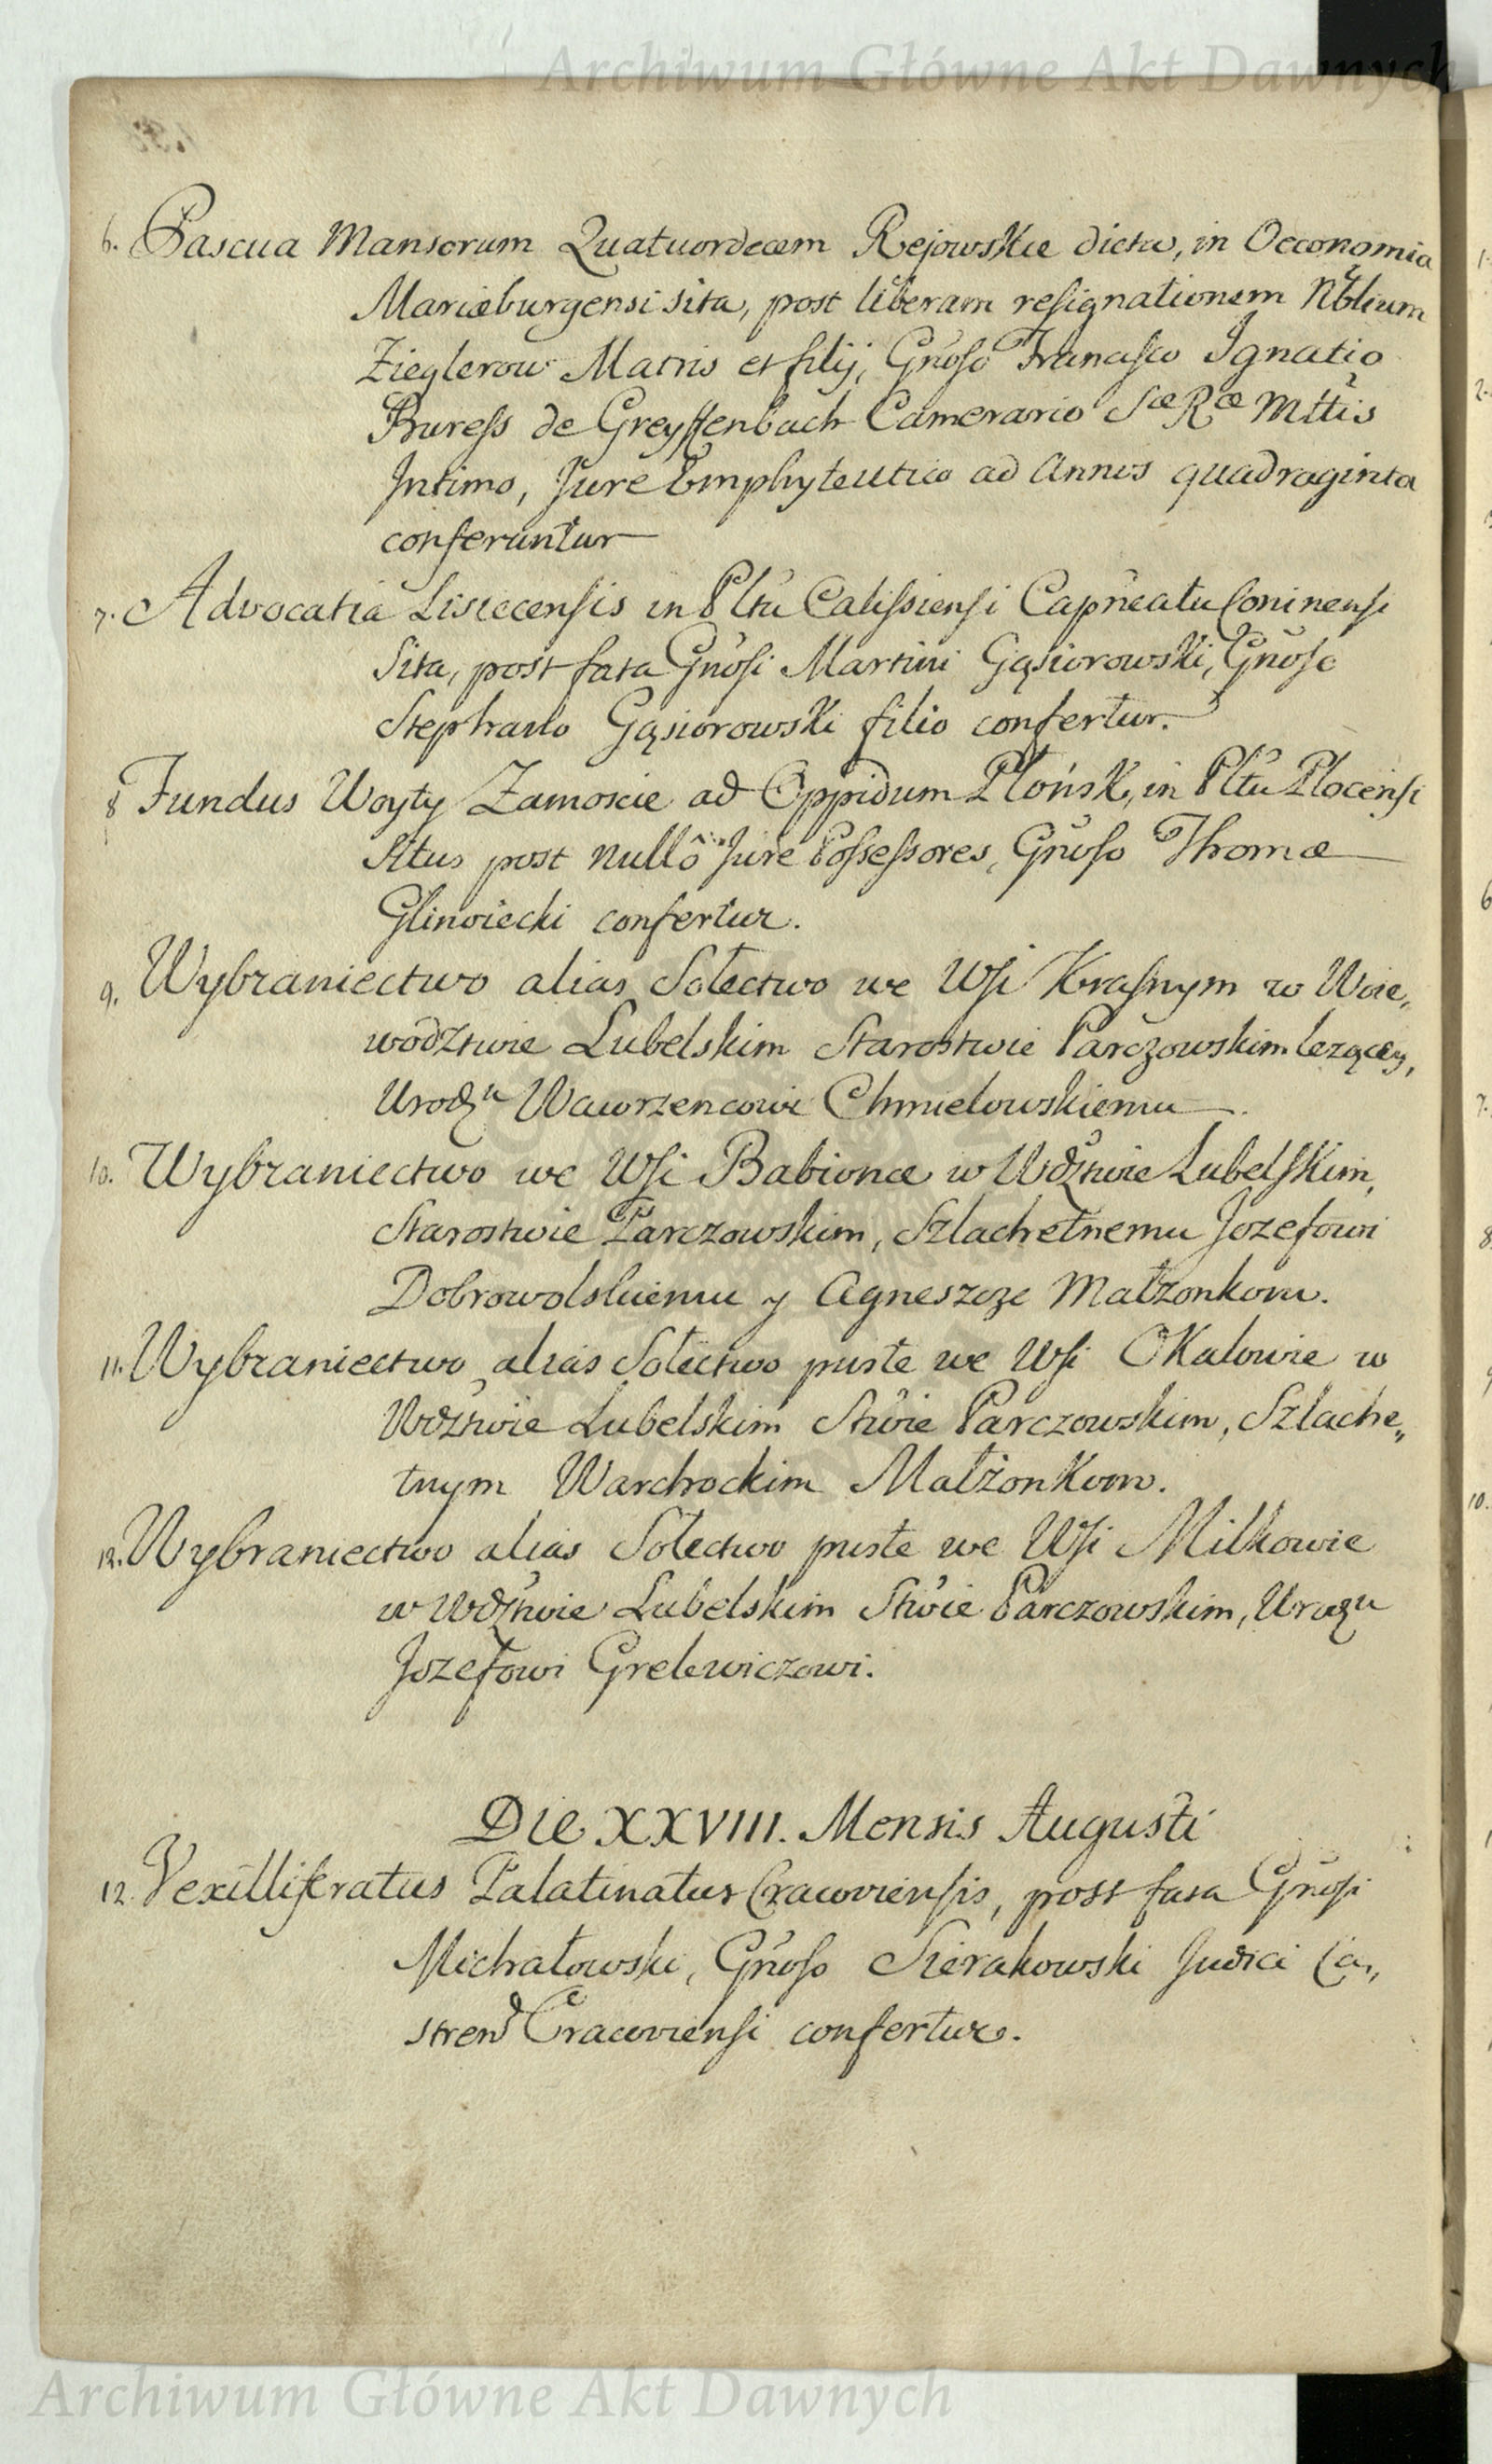 Archiwum Główne Akt Dawnych
6. Pascua Mansorum Quatuordecem Rejowskie dicta, in Oeconomia
Mariæburgensi sita, post liberam resignationem Nblium
Zieglerow Matris et filij, Gnoso Francisco Ignatio
Buress de Greyffenbach Camerario Sæ Ræ Mttis
Intimo, Jure Emphyteutico ad Annos quadraginta
conferuntur
7. Advocatia Lisiecensis in Pltu Calissiensi Capneatu Coninensi
Sita, post fata Gnosi Martini Gąsiorowski, Gnoso
Stephano Gąsiorowski filio confertur.
8 Fundus Woyty Zamoście ad Oppidum Płońsk, in Pltu Plocensi
situs post nullô Jure Possessores, Gnoso Thomæ
Glinoiecki confertur.
9. Wybraniectwo alias Sołectwo we Wsi Krasnym w Woie„
wodztwie Lubelskim Starostwie Parczowskim lezącey,
Urodzu Wawrzencowi Chmielowskiemu.
10. Wybraniectwo we Wsi Babionce w Wdztwie Lubelskim,
Starostwie Parczowskim, Szlachetnemu Jozefowi
Dobrowolskiemu y Agneszcze Małzonkom.
11. Wybraniectwo alias Sołectwo puste we Wsi Okalowie w
Wdztwie Lubelskim Stwie Parczowskim, Szlache„
tnym Warchockim Małżonkom.
12. Wybraniectwo alias Sołectwo puste we Wsi Milkowie
w Wdztwie Lubelskim Stwie Parczowskim, Urodzu
Jozefowi Grelewiczowi.
Die XXVIII. Mensis Augusti
12. Vexilliferatus Palatinatus Cracoviensis, post fata Gnosi
Michałowski, Gnoso Sierakowski Judici Ca„
stren Cracoviensi confertur.
Archiwum Główne Akt Dawnych